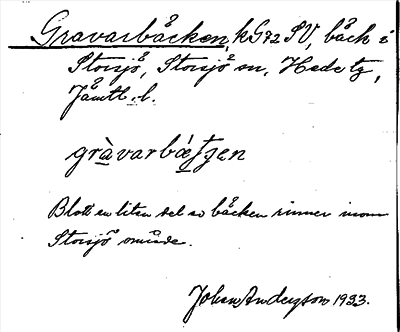 Gravarbäcken, k G72 SV, bäck i
Storsjö, Storsjö sn, Hede tg,
Jämtl. l.
gràvarbä́tʃen
Blott en liten del av bäcken rinner inom
Storsjö område.
Johan Anderzson 1933.